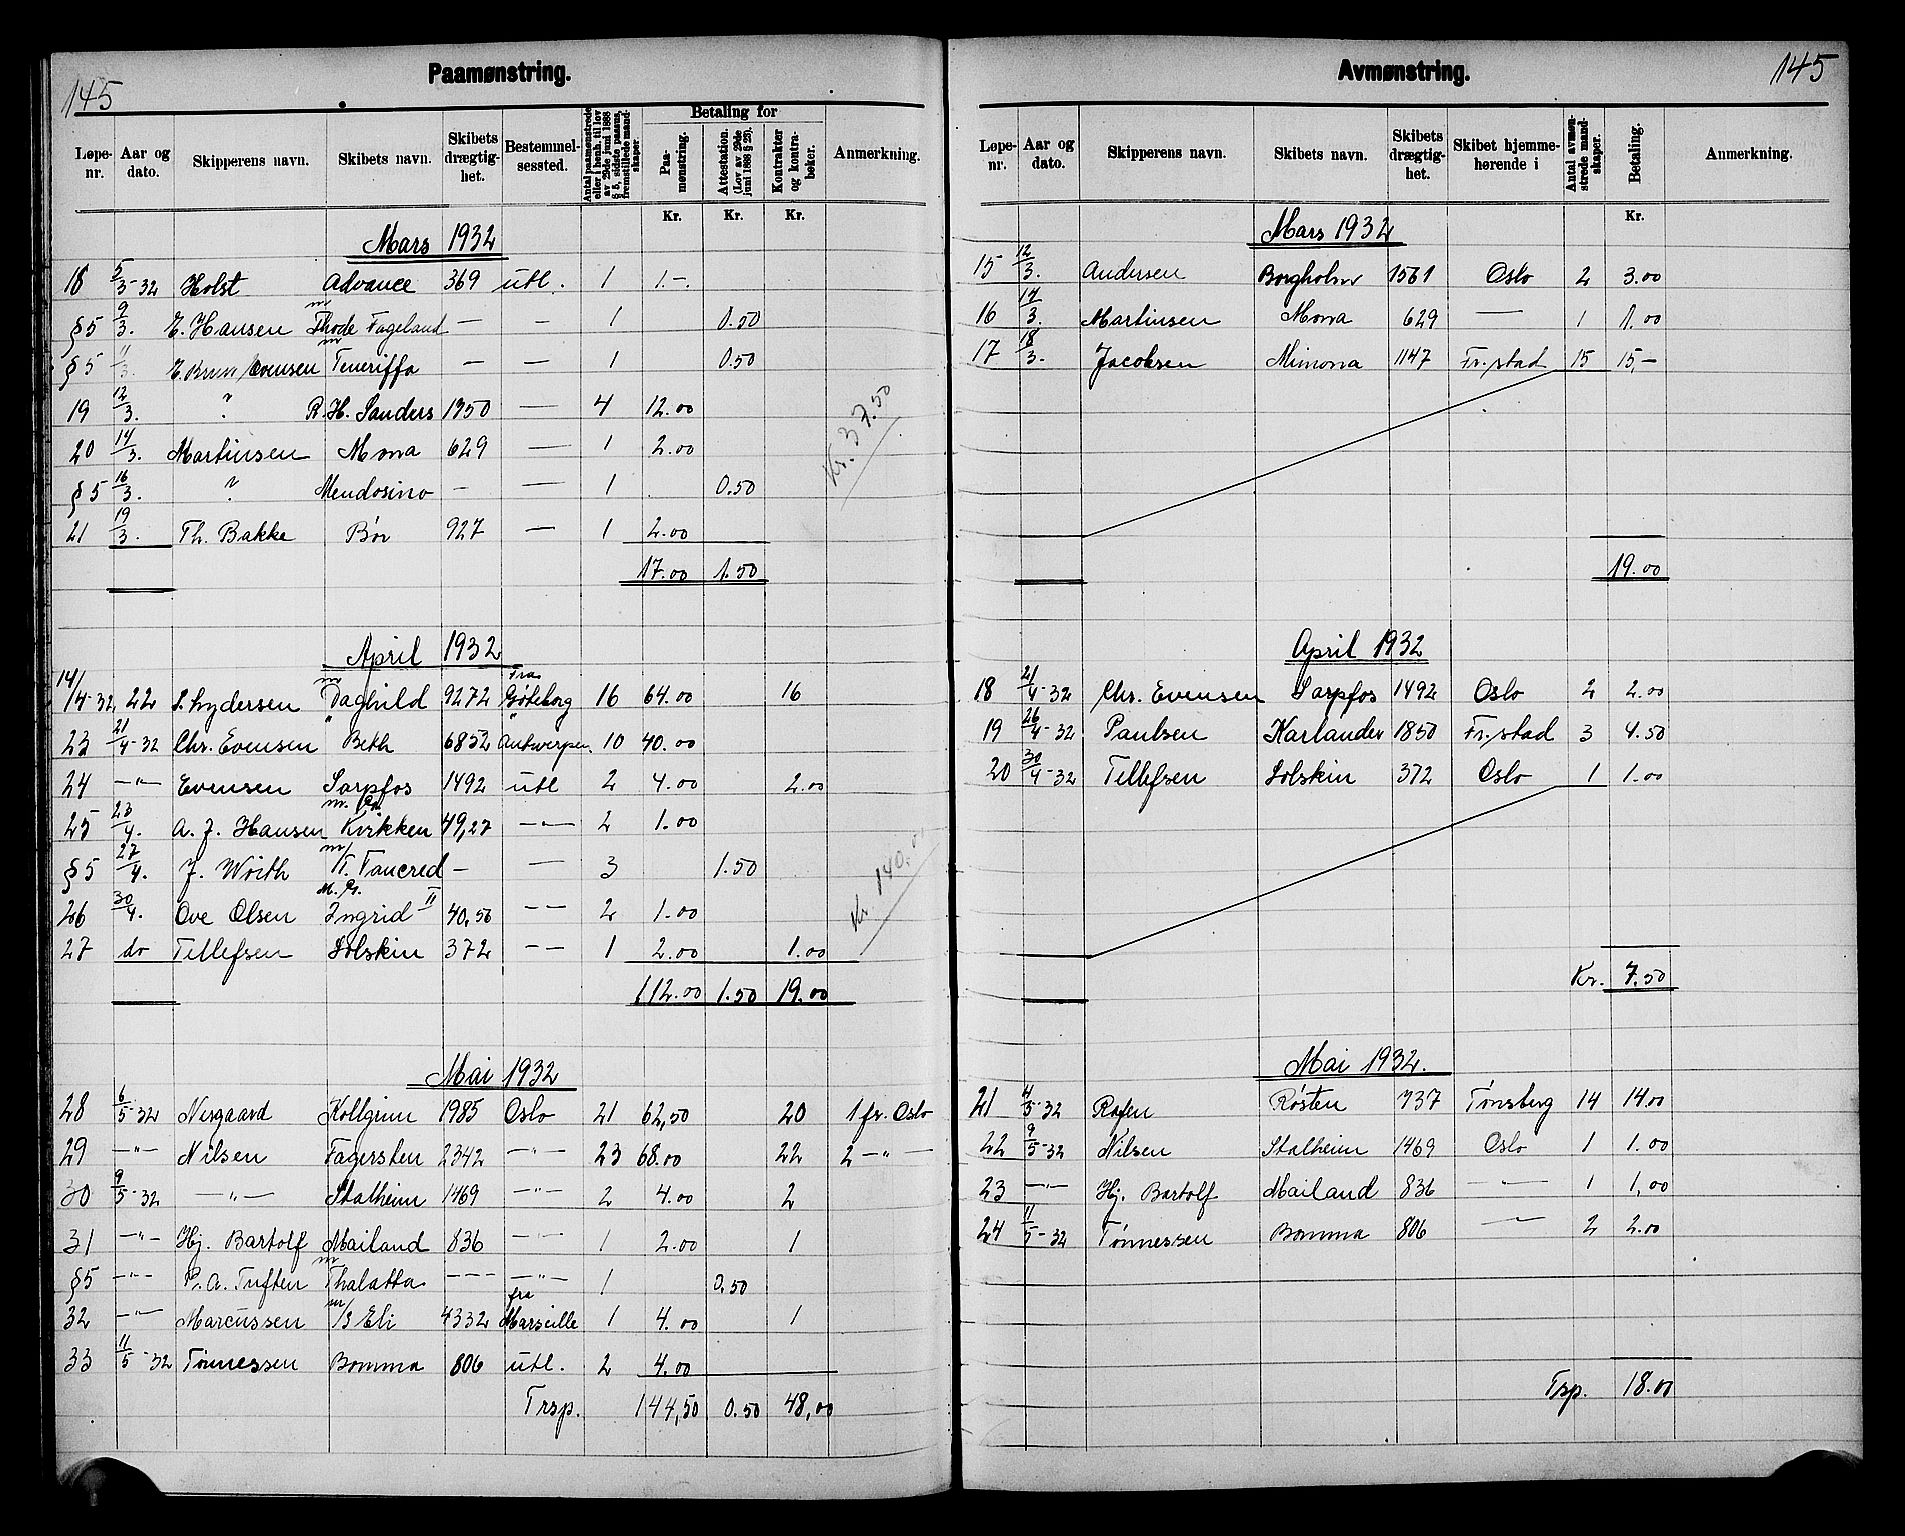 145
Paamønstring.
Løpe-nr. Aar og dato. Skipperens navn. Skibets navn. Skibets drægtig-het. Bestemmel-sessted. Antal paamønstrede eller i henh. til lov av 29de juni 1888 § 5, sidste passus, fremstillede mand-skaper. Betaling for Paa-mønstring. Attestation. (Lov av 29de juni 1888 § 23). Kontrakter og kontra-bøker. Anmerkning.
Kr. Kr. Kr.
Mars 1932
18 5/3-32 Holst Advance 369 utl. 1 1.-
§5 9/3. E. Hansen m/ Thode Fagelund — — 1 0.50
§5 11/3. E. Evensen m/ Teneriffa — — 1 0.50
19 12/3. ? R. H. Sanders 1350 — 4 12.00
20 14/3. Martinsen Mona 629 — 1 2.00
§5 16/3. ? Mendosino - — 1 0.50
21 19/3. Th. Bakke Bör 927 — 1 2.00
17.00 1.50
Kr. 37.50
April 1932
14/4-32 22 S. Lydersen m/ Daghild 9272 Fra Göteborg 16 64.00 16
23 21/4-32 Chr. Evensen " Beth 6852 " Antwerpen 10 40.00
24 —"— Evensen Sarpfos 1492 utl 2 4.00 2.00
25 23/4. A. J. Hansen Kirkken 49,27 —"— 2 1.00
§5 27/4. J. Wörth m/T. Tancred - — 3 1.50
26 30/4. Ove Olsen M. Gr. Ingrid II 40.56 –– 2 1.00
27 do Tellefsen Solskin 372 –– 1 2.00 1.00
112.00 1.50 19.00
Kr. 140.
Mai 1932
28 6/5-32 Nergaard Kollgrim 1985 Oslo 21 62,50 20 1 fr. Oslo
29 —"— Nilsen Fagersten 2342 —"— 23 68.00 22 2 —"—
30 9/5-32 —"— Stalheim 1469 —"— 2 4.00 2
31 —"— Hj. Bartolf Mailand 836 —"— 1 2.00 1
§5 —"— P. A. Tuften m/ Thalatta --- —"— 1 0.50
32 —"— Marcussen m/S Eli 4332 fra Marseille 1 4.00 1
33 11/5-32 Tønnessen Bomma 806 utl. 2 4.00
Trsp. 144,50 0.50 48,00
Avmønstring.
145
Løpe-nr. Aar og dato. Skipperens navn. Skibets navn. Skibets drægtig-het. Skibet hjemme-hørende i Antal avmøn-strede mand-skaper. Betaling. Anmerkning.
Kr.
Mars 1932
15 12/3. Andersen Borgholm 1561 Oslo 2 3.00
16 14/3. Martinsen Mona 629 — 1 1.00
17 18/3. Jacobsen Mimona 1147 Fr.stad 15 15,—
19.00
April 1932
18 21/4-32 Chr. Evensen Sarpfos 1492 Oslo 2 2.00
19 26/4-32 Paulsen Karlander 1850 Fr.stad 3 4.50
20 30/4-32 Tellefsen Solskin 372 Oslo 1 1.00
Kr. 7.50
Mai 1932.
21 4/5-32 Rafen Røsten 737 Tønsberg 14 14.00
22 9/5-32 Nilsen Stalheim 1469 Oslo 1 1.00
23 —"— Hj. Bartolf Mailand 836 —"— 1 1,00
24 11/5-32 Tønnessen Bomma 806 —"— 2 2.00
Trsp. 18.00